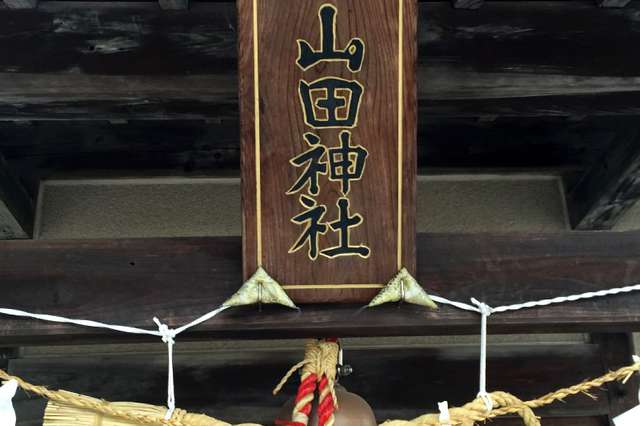 山田神社